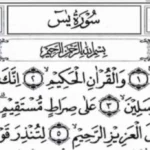 سُورَةُ يسٓ
بِسْمِ اللَّهِ الرَّحْمَٰنِ الرَّحِيمِ
١ وَالْقُرْآنِ الْحَكِيمِ ٢ إِنَّكَ
سَلِينَ ٣ عَلَىٰ صِرَاطٍ مُّسْتَقِيمٍ
الْعَزِيزِ الرَّحِيمِ ٥ لِتُنذِرَ قَوْ